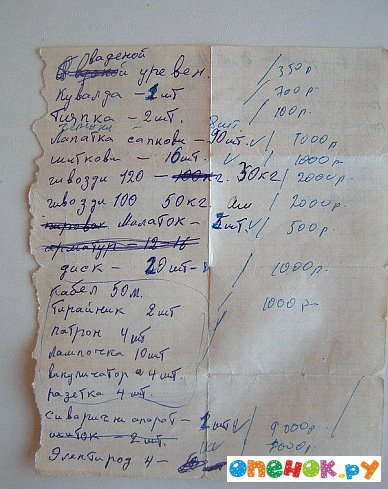 ваденой
уревен. / 350р
Кувалда - 1шт / 700р
Тяпка - 2шт. / 100р
Лапатка сапкови - 90шт. √ 1000р
шиткови - 16шт. √ 1000р
гивозди 120 - 100кг. 50кг / 2000р
гивозди 100 50кг. / 2000р
Малаток - шт. √ 500р
арматур - 12-16
диск - 20шт - 1000р
Кабел 50м.
Тирайник 2шт 1000р
патрон 4шт
лампочка 10шт
викуличатор 4шт.
разетка 4шт.
сиваричи апорат - 1шт 9000р
- 2шт. 1000р
Электирод 4 -
опенок.ру